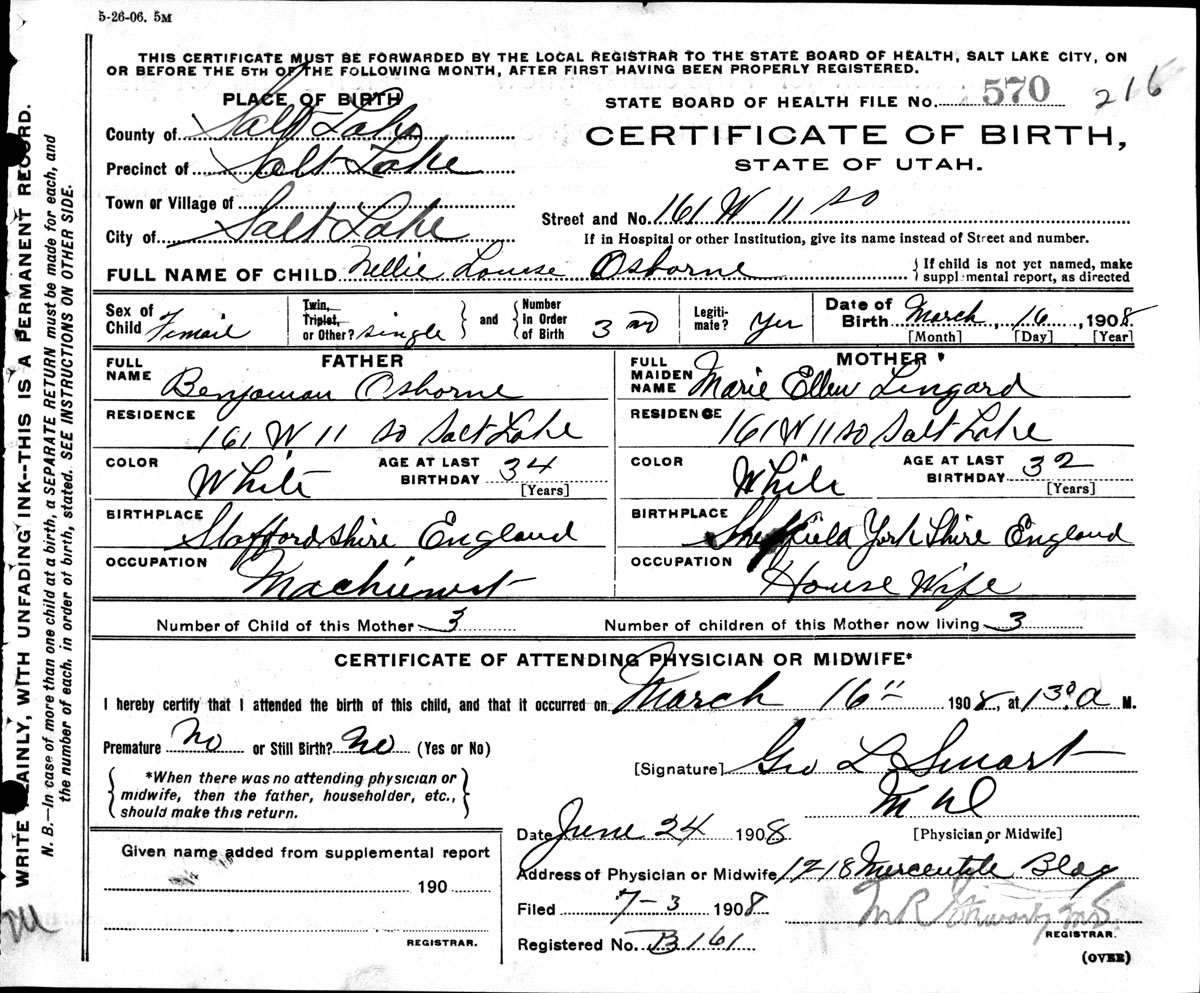 5-26-06. 5M
THIS CERTIFICATE MUST BE FORWARDED BY THE LOCAL REGISTRAR TO THE STATE BOARD OF HEALTH, SALT LAKE CITY, ON
OR BEFORE THE 5TH OF THE FOLLOWING MONTH, AFTER FIRST HAVING BEEN PROPERLY REGISTERED.
PLACE OF BIRTH
County of Salt Lake
Precinct of Salt Lake
Town or Village of
City of Salt Lake
STATE BOARD OF HEALTH FILE No. 570 216
CERTIFICATE OF BIRTH,
STATE OF UTAH.
Street and No. 161 W 11 so
If in Hospital or other Institution, give its name instead of Street and number.
FULL NAME OF CHILD Nellie Louise Osborne { If child is not yet named, make
supplemental report, as directed
Sex of Child Femail
Twin, Triplet, or Other? single } and { Number in Order of Birth 3rd
Legiti-mate? Yes
Date of Birth March, 16, 1908
[Month] [Day] [Year]
FATHER
FULL NAME Benjaman Osborne
RESIDENCE 161 W 11 so Salt Lake
COLOR White AGE AT LAST BIRTHDAY 34
[Years]
BIRTHPLACE Staffordshire England
OCCUPATION Machienest
MOTHER
FULL MAIDEN NAME Marie Ellen Lingard
RESIDENCE 161 W 11 so Salt Lake
COLOR White AGE AT LAST BIRTHDAY 32
[Years]
BIRTHPLACE Sheffield York Shire England
OCCUPATION House Wife
Number of Child of this Mother 3 Number of children of this Mother now living 3
CERTIFICATE OF ATTENDING PHYSICIAN OR MIDWIFE*
I hereby certify that I attended the birth of this child, and that it occurred on March 16" 1908, at 1 30 a M.
Premature No or Still Birth? No (Yes or No)
{ *When there was no attending physician or
midwife, then the father, householder, etc.,
should make this return. }
[Signature] Geo L Smart
M D
[Physician or Midwife]
Date June 24 1908
Address of Physician or Midwife 1218 Mercentile Bldg
Filed 7-3 1908
M R Stewart, M.D.
REGISTRAR.
Registered No. B161
(OVER)
Given name added from supplemental report
190
REGISTRAR.
WRITE PLAINLY, WITH UNFADING INK--THIS IS A PERMANENT RECORD.
N. B.—In case of more than one child at a birth, a SEPARATE RETURN must be made for each, and
the number of each, in order of birth, stated. SEE INSTRUCTIONS ON OTHER SIDE.